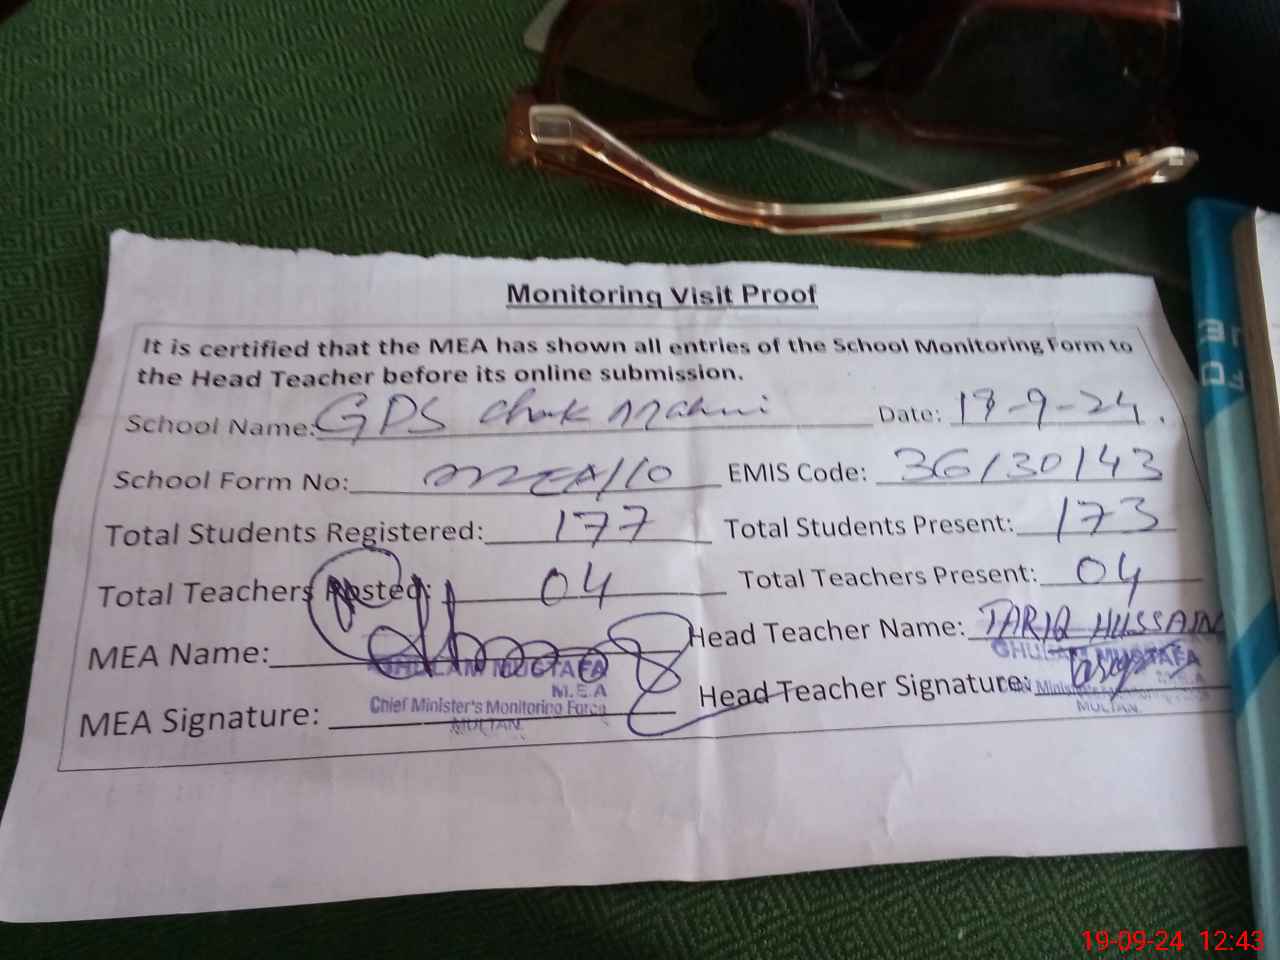 Monitoring Visit Proof
It is certified that the MEA has shown all entries of the School Monitoring Form to
the Head Teacher before its online submission.
School Name: GPS Chak Date: 19-9-24.
School Form No: MEA/10 EMIS Code: 36130143
Total Students Registered: 177 Total Students Present: 173
Total Teachers Posted: 04 Total Teachers Present: 04
MEA Name: Head Teacher Name: TARIQ HUSSAIN
GHULAM MUSTAFA GHULAM MUSTAFA
M.E.A
MEA Signature: Chief Minister's Monitoring Force Head Teacher Signature:
MULTAN. MULTAN.
19-09-24 12:43